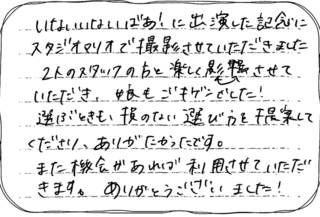 いないいないばあ!に出演した記念に
スタジオマリオで撮影させていただきました
2人のスタッフの方と楽しく撮影させて
いただき、娘もごキゲンでした!
選ぶときも損のない選び方を提案して
くださり、ありがたかったです。
また機会があれば利用させていただ
きます。ありがとうございました!